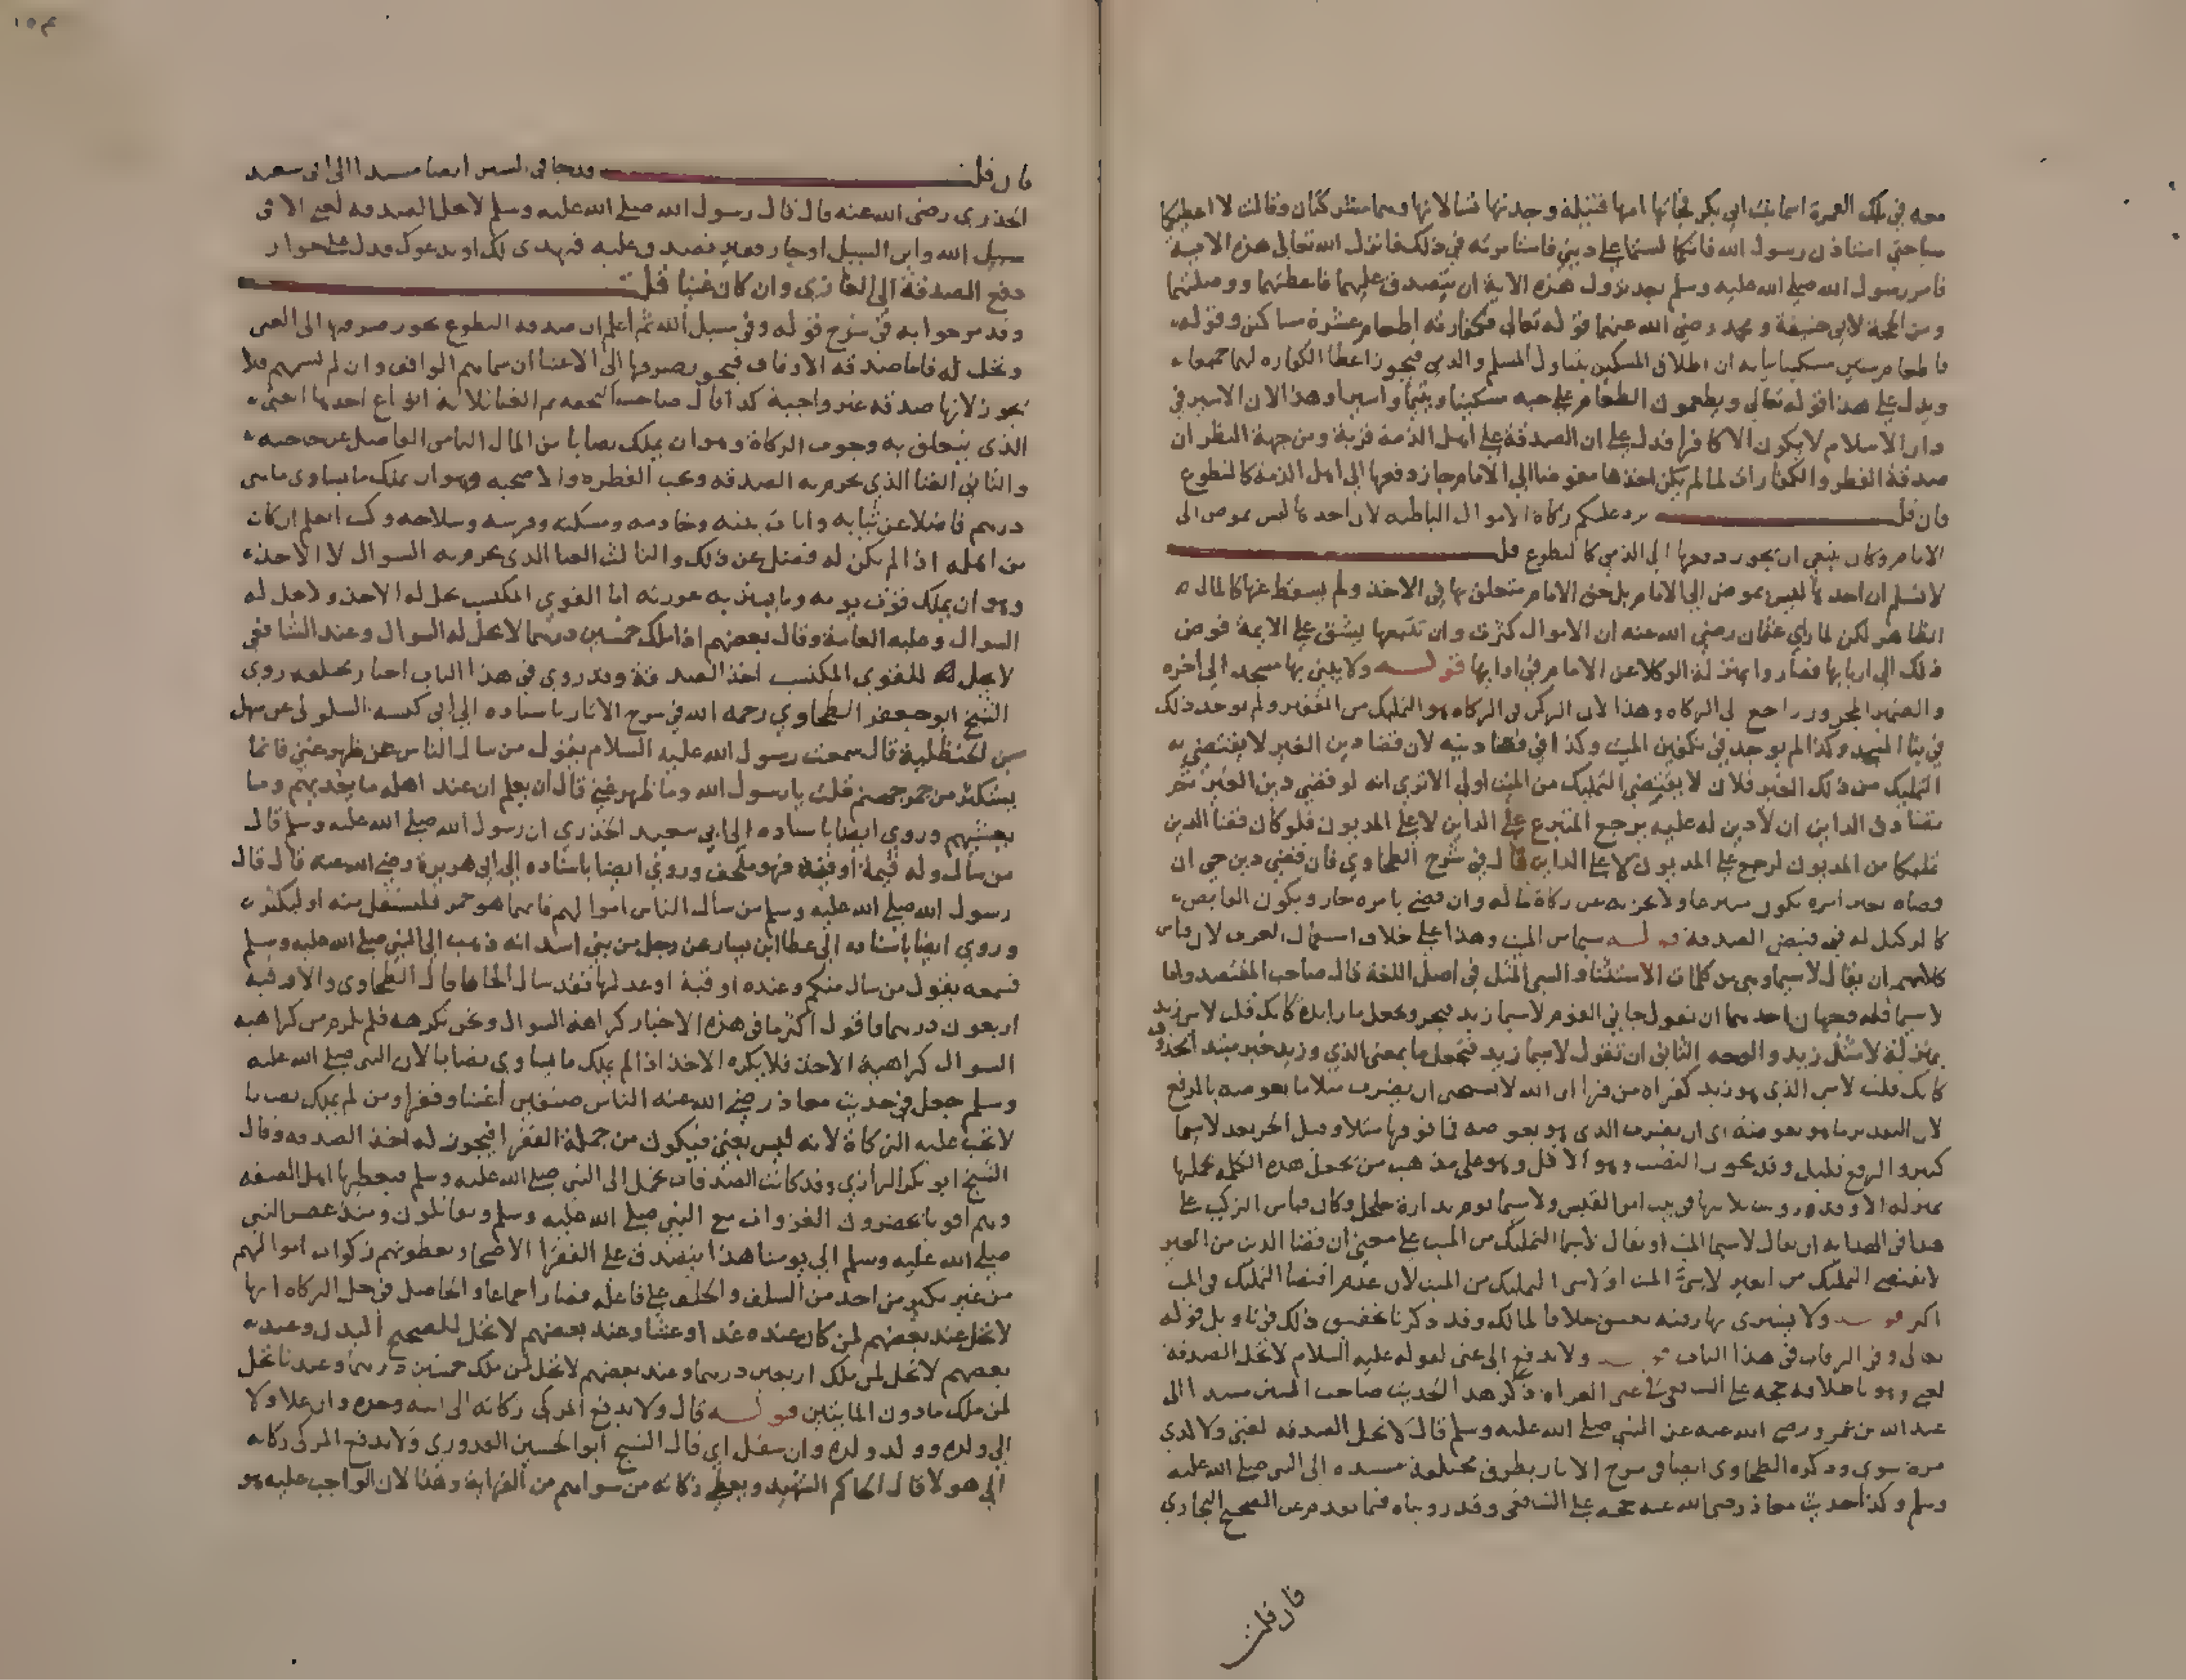 معه في تلك العمرة اسما بنت ابي بكر فجاتها امها قتيلة وجدتها تسالانها وهما مشركتان وقالت لا اعطيكما
حتى استاذن رسول الله فانكما لستما على ديني فاستامرته في ذلك فانزل الله تعالى هذه الاية
فامر رسول الله صلى الله عليه وسلم بعد نزول هذه الاية ان تتصدق عليهما فاعطتهما ووصلتهما
ومن الحجة لابي حنيفة ومحمد رضي الله عنهما قوله تعالى فكفارته اطعام عشرة مساكين وقوله
فاطعام ستين مسكينا بيانه ان اطلاق المسكين يتناول المسلم والذمي فيجوز اعطا الكفاره لهما جميعا
ويدل على هذا قوله تعالى ويطعمون الطعام على حبه مسكينا ويتيما واسيرا وهذا لان الاسير في
دار الاسلام لا يكون الا كافرا فدل على ان الصدقة على اهل الذمة قربة ومن جهة النظر ان
صدقة الفطر والكفارات لما لم يكن اخذها مفوضا الى الامام جاز دفعها الى اهل الذمة كالتطوع
فان قلت يرد عليكم زكاة الاموال الباطنه لان اخدها ليس بمفوض الى
الامام وكان ينبغي ان يجوز دفعها الى الذمي كالتطوع قلت
لا نسلم ان اخدها ليس بمفوض الى الامام بل حق الامام متعلق بها في الاخذ ولم يسقط عنها كالمال
الظاهر لكن لما راى عثمان رضي الله عنه ان الاموال كثرت وان تتبعها يشق على الايمة فوض
ذلك الى اربابها فصاروا بمنزلة الوكلا عن الامام في ادايها قولـــه ولا يبنى بها مسجد الى اخره
والضمير المجرور راجع الى الزكاه وهذا لان الركن في الزكاه هو التمليك من الفقير ولم يوجد ذلك
في بنا المسجد وكذا لم يوجد في تكفين الميت وكذا في قضا دينه لان قضا دين الغير لا يقتضي به
التمليك من ذلك الغير فلان لا يقتضي التمليك من الميت اولى الا ترى انه لو قضى دين الغير ثم
تصادق الداين ان لا دين له عليه يرجع المتبرع على الداين لا على المديون فلو كان قضا الدين
تمليكا من المديون لرجع على المديون لا على الداين قال في شرح الطحاوي فان قضى دين حي ان
قضاه بغير امره يكون متبرعا ولا يجزيه عن زكاة ماله وان قضى بامره جاز ويكون القابض
كالوكيل له في قبض الصدقة قولـــه سيما من الميت وهذا على خلاف استعمال العرب لان قياس
كلامهم ان يقال لا سيما وهي من كلمات الاستثنا والسي المثل في اصل اللغة قال صاحب المقتصد واما
لا سيما ففيه وجهان احدهما ان تقول جاني القوم لا سيما زيد فيجر وتجعل ما زايدة كانك قلت لا سي زيد
بمنزلة لا مثل زيد والوجه الثاني ان تقول لا سيما زيد فتجعل ما بمعنى الذي وزيد خبر مبتدا محذوف
كانك قلت لا سي الذي هو زيد كقراه من قرا ان الله لا يستحيى ان يضرب مثلا ما بعوضه بالرفع
لان التقدير ما هو بعوضه اي ان يضرب الذي هو بعوضه فما فوقها مثلا وقيل الجر بعد لا سيما
كثير والرفع قليل وقد يجوز النصب وهو الاقل وهو على مذهب من يجعل هذه الكلمه بجملتها
بمنزلة الا وقد روى بيت امرا القيس ولا سيما يوم بدارة جلجل وكان قياس التركيب على
هذا في الهدايه ان يقال لا سيما الميت او يقال لا سيما التمليك من الميت على معنى ان قضا الدين من الغير
لا يقتضي التمليك من الغير لا سي الميت او لا سي التمليك من الميت لان عدم اقتضا التمليك في الميت
اكثر قولـــه ولا يشترى بها رقبة تعتق خلافا لمالك وقد ذكرنا تحقيق ذلك في تاويل قوله
تعالى وفي الرقاب في هذا الباب قولـــه ولا يدفع الى غنى لقوله عليه السلام لا تحل الصدقة
لغنى وهو باطلاقه حجه على الشافعي في غنى الغزاه ذكر هذا الحديث صاحب السنن مسندا الى
عبد الله بن عمرو رضي الله عنه عن النبي صلى الله عليه وسلم قال لا تحل الصدقه لغنى ولا لذي
مرة سوي وذكره الطحاوي ايضا في شرح الاثار بطرق مختلفة مسنده الى النبي صلى الله عليه
وسلم وكذا حديث معاذ رضي الله عنه حجه على الشافعي وقد رويناه فيما تقدم عن الصحيح البخاري
فان قلت
١٥٤
فان قلت وقد جا في السنن ايضا مسندا الى ابي سعيد
الخدري رضى الله عنه قال قال رسول الله صلى الله عليه وسلم لا تحل الصدقه لغنى الا في
سبيل الله وابن السبيل او جار فقير تصدق عليه فيهدى لك او يدعوك فدل على جواز
دفع الصدقة الى الغازي وان كان غنيا قلت
وقد صرحوا به في شرح قوله وفي سبيل الله ثم اعلم ان صدقه التطوع يجوز صرفها الى الغنى
وتحل له فاما صدقه الاوقاف فيجوز صرفها الى الاغنيا ان سماهم الواقف وان لم يسمهم فلا
يجوز لانها صدقه غير واجبة كذا قال صاحب التحفه ثم الغنا ثلاثة انواع احدها الغنى
الذي يتعلق به وجوب الزكاة وهو ان يملك نصابا من المال النامي الفاضل عن حاجته
والثاني الغنا الذي يحرم به الصدقه وتجب الفطره والاضحيه وهو ان يملك ما يساوى مايتى
درهم فاضلا عن ثيابه واثاث بيته وخادمه ومسكنه وفرسه وسلاحه وكتب العلم ان كان
من اهله اذا لم يكن له فضل عن ذلك والثالث الغنا الذي يحرم به السوال لا الاخذ
وهو ان يملك قوت يومه وما يستر به عورته اما القوي المكتسب يحل له الاخذ ولا يحل له
السوال وعليه العامة وقال بعضهم اذا ملك خمسين درهما لا يحل له السوال وعند الشافعي
لا يحل للقوى المكتسب اخذ الصدقة وقد روى في هذا الباب اخبار مختلفه روى
الشيخ ابو جعفر الطحاوي رحمه الله في شرح الاثار باسناده الى ابي كبشه السلولي عن سهل
بن الحنظلية قال سمعت رسول الله عليه السلام يقول من سال الناس عن ظهر غنى فانما
يستكثر من جمر جهنم قلت يا رسول الله وما ظهر غنى قال ان يعلم ان عند اهله ما يغديهم وما
يعشيهم وروى ايضا باسناده الى ابي سعيد الخدري ان رسول الله صلى الله عليه وسلم قال
من سال وله قيمة اوقية فهو ملحف وروى ايضا باسناده الى ابي هريرة رضى الله عنه قال قال
رسول الله صلى الله عليه وسلم من سال الناس اموالهم فانما هو جمر فليستقل منه او ليكثر
وروى ايضا باسناده الى عطا ابن يسار عن رجل من بني اسد انه ذهب الى النبي صلى الله عليه وسلم
فسمعه يقول من سال منكم وعنده اوقية او عدلها فقد سال الحافا قال الطحاوى والاوقية
اربعون درهما فاقول اكثر ما في هذه الاخبار كراهة السوال ونحن نكرهه فلم يلزم من كراهيه
السوال كراهية الاخذ فلا يكره الاخذ اذا لم يملك ما يساوى نصابا لان النبي صلى الله عليه
وسلم جعل في حديث معاذ رضي الله عنه الناس صنفين اغنيا وفقرا ومن لم يملك نصابا
لا تجب عليه الزكاة لانه ليس بغنى فيكون من جملة الفقرا فيجوز له اخذ الصدقه وقال
الشيخ ابو بكر الرازي وقد كانت الصدقات تحمل الى النبي صلى الله عليه وسلم فيعطيها اهل الصفه
وهم اقويا يحضرون الغزوات مع النبي صلى الله عليه وسلم ويقاتلون ومنذ عصر النبي
صلى الله عليه وسلم الى يومنا هذا يتصدق على الفقرا الاصحا ويعطونهم زكوات اموالهم
من غير نكير من احد من السلف والخلف على فاعله فصار اجماعا والحاصل في حل الزكاه انها
لا تحل عند بعضهم لمن كان عنده غدا او عشا وعند بعضهم لا تحل للصحيح البدن وعند
بعضهم لا تحل لمن ملك اربعين درهما وعند بعضهم لا تحل لمن ملك خمسين درهما وعندنا تحل
لمن ملك ما دون المايتين قولـــه قال ولا يدفع المزكى زكاته الى ابيه وجده وان علا ولا
الى ولده وولد ولده وان سفل اي قال الشيخ ابو الحسين القدوري ولا يدفع المزكى زكاته
الى هولا قال الحاكم الشهيد ويعطى زكاته من سواهم من القرابة وهذا لان الواجب عليه هو